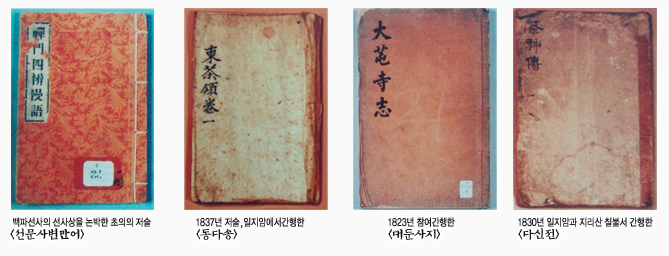 禪門四辨漫語
東茶頌卷一
大芚寺志
茶神傳
백파선사의 선사상을 논박한 초의의 저술
〈선문사변만어〉
1837년 저술,일지암에서간행한
〈동다송〉
1823년 참여간행한
〈대둔사지〉
1830년 일지암과 지리산 칠불서 간행한
〈다신전〉